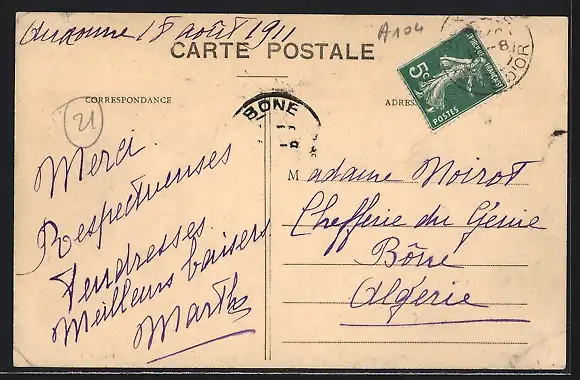 Auxonne 18 août 1911
A104
CARTE POSTALE
CORRESPONDANCE
ADRES
21
BONE
D'OR
5c
POSTES
Merci
Respectueuses
Tendresses
Meilleurs baisers
Marthe
Madame Noirot
Chefferie du Génie
Bône
Algérie